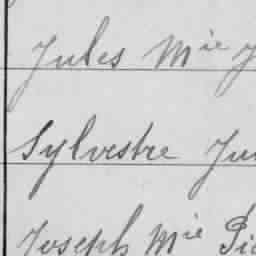 Jules Mie J
Sylvestre Ju
Joseph Mie Pi